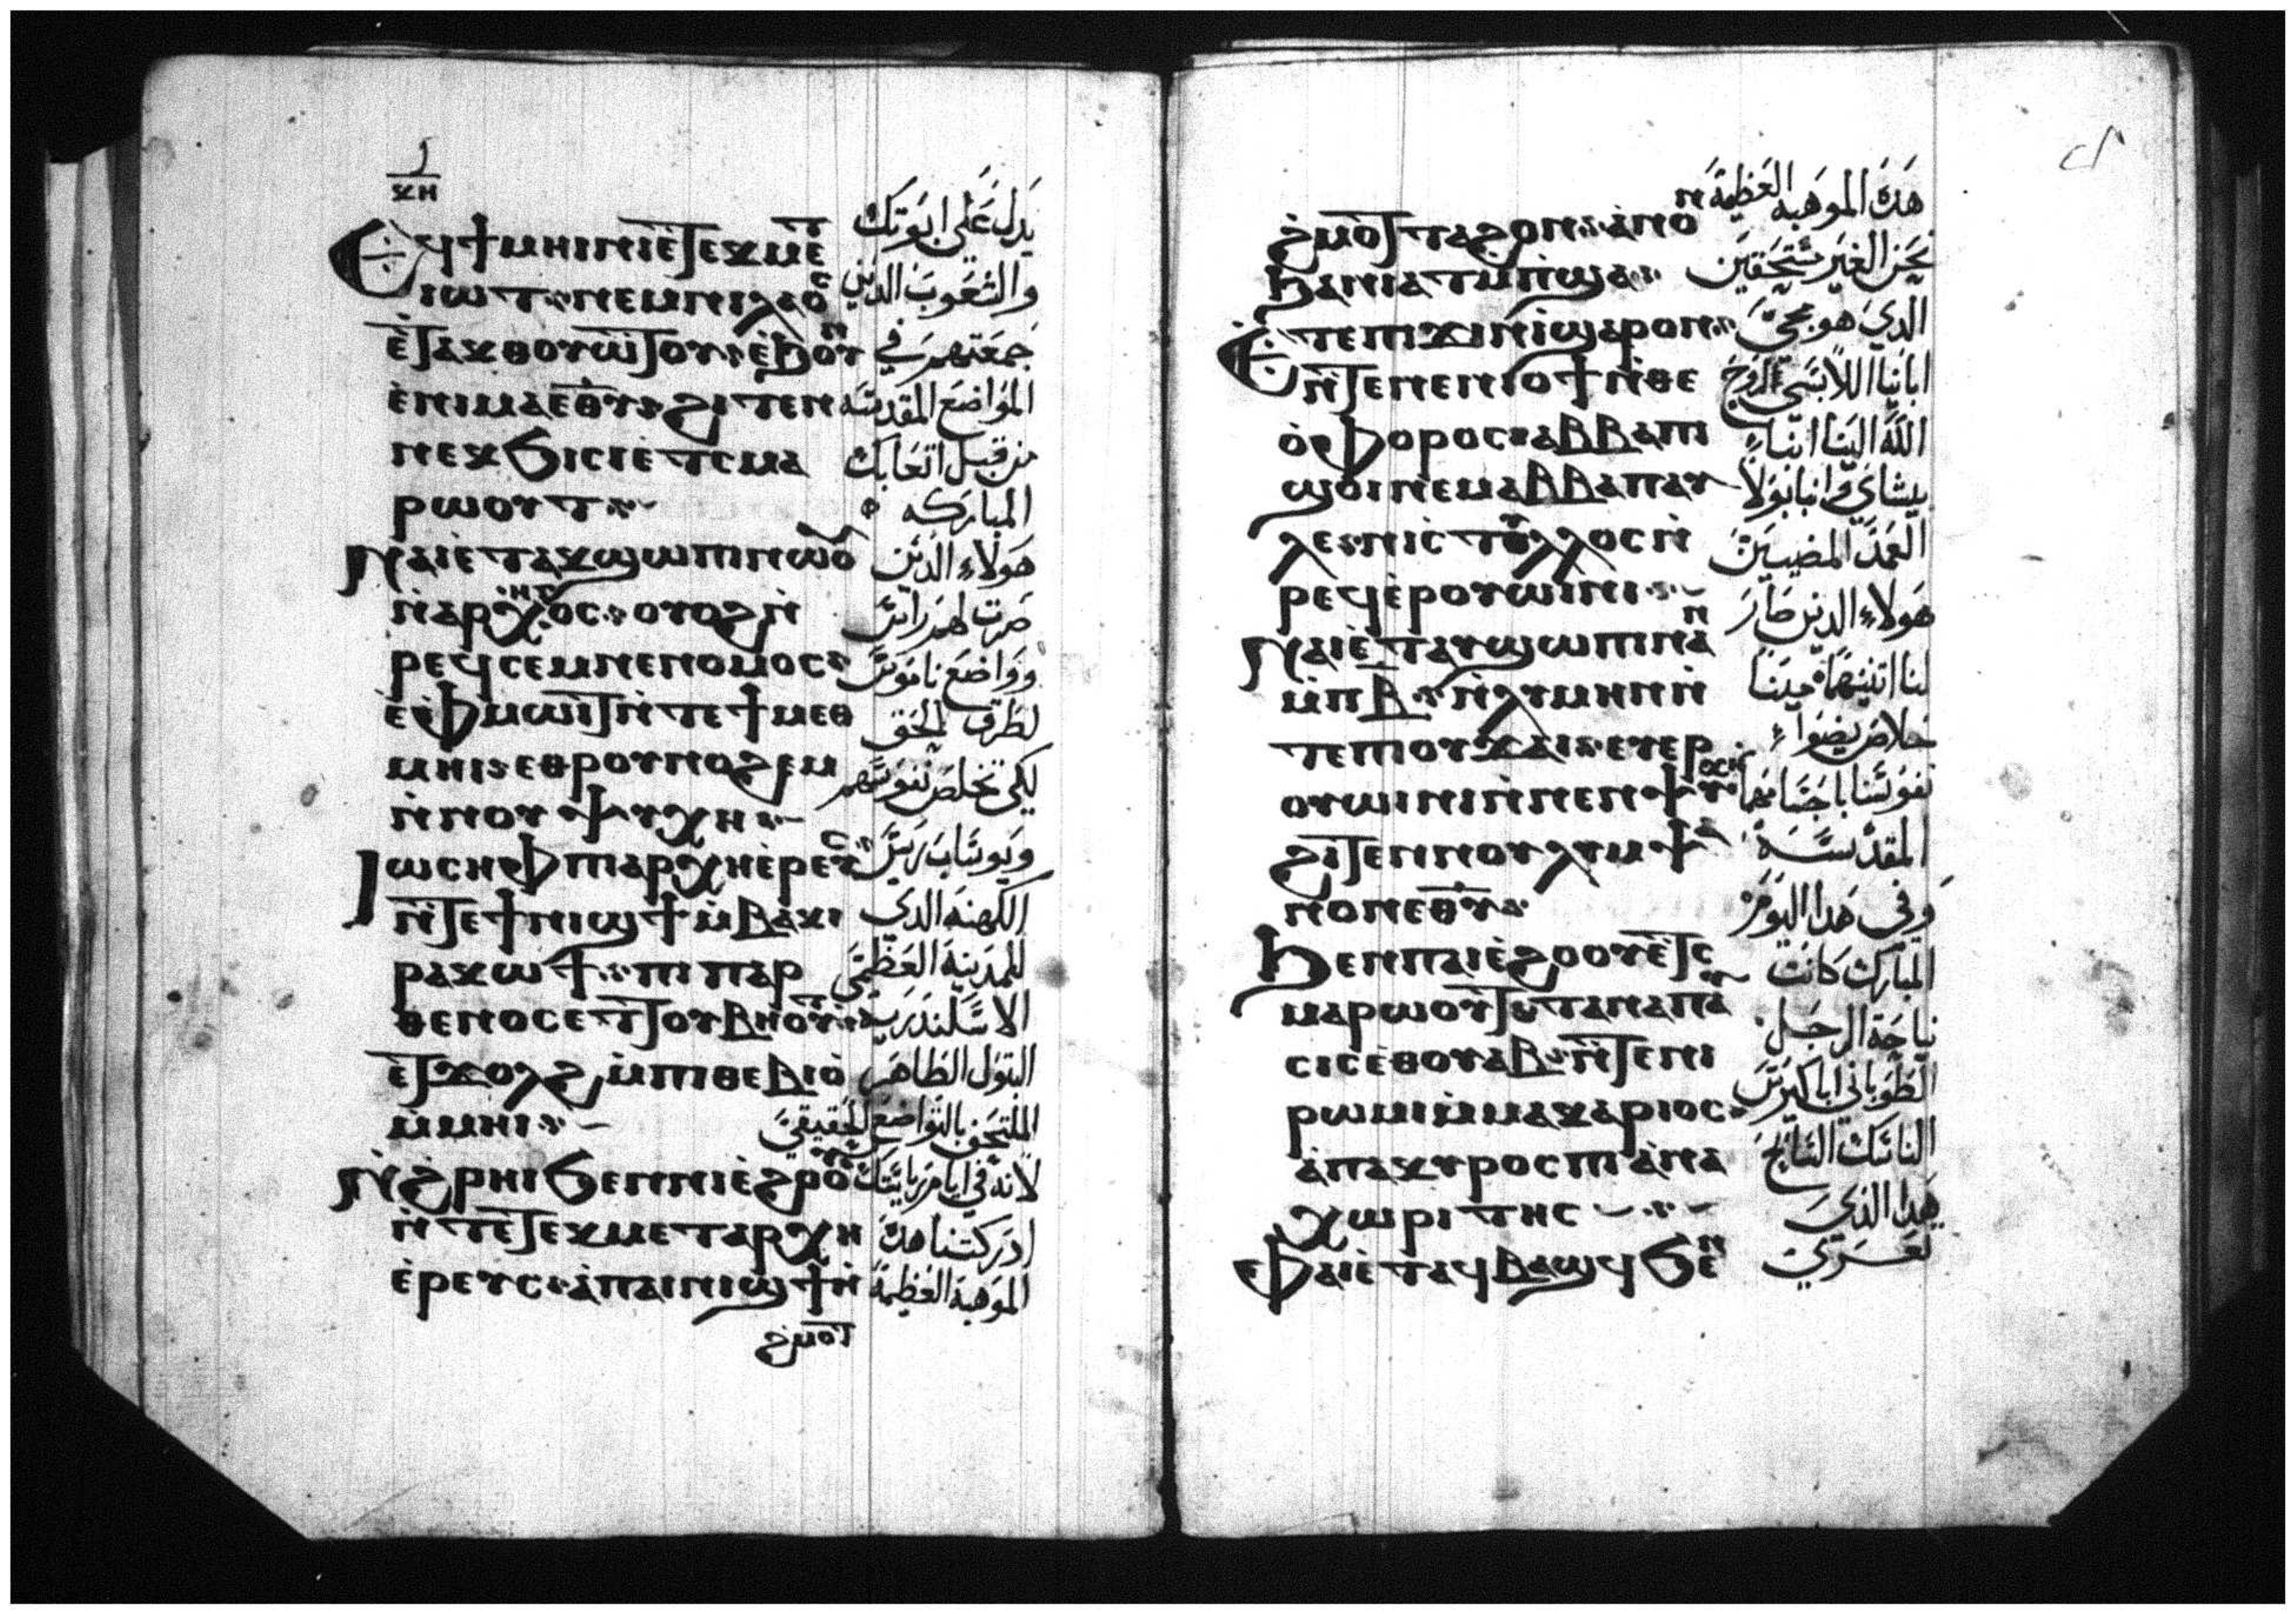 ⲕⲏ
Ⲉϥϯⲙⲏⲓⲛⲓⲉ̀ⲧⲉⲕⲙⲉⲧ
ⲓⲱⲧ ⲛⲉⲙⲛⲓⲗⲁⲟⲥ
ⲉ̀ⲧⲁⲕⲑⲟⲩⲱⲧⲟⲩ ⲉ̀ϧⲟⲩⲛ
ⲉ̀ⲛⲓⲙⲁⲉⲑⲩ ϩⲓⲧⲉⲛ
ⲛⲉⲕϧⲓⲥⲓⲉⲧⲥⲙⲁ
ⲣⲱⲟⲩⲧ
Ⲛⲁⲓⲉ̀ⲧⲁⲕϣⲱⲡⲓⲛⲱⲟⲩ
ⲛ̀ⲁⲣⲭⲏⲅⲟⲥ ⲟⲩⲟϩⲛ̀
ⲣⲉϥⲥⲉⲙⲛⲉⲛⲟⲙⲟⲥ
ⲉ̀ⲫⲙⲱⲓⲧⲛ̀ⲧⲉϯⲙⲉⲑ
ⲙⲏⲓ ⲉⲑⲣⲟⲩⲛⲟϩⲉⲙ
ⲛ̀ⲛⲟⲩⲯⲩⲭⲏ
Ⲓⲱⲥⲏⲫⲡⲓⲁⲣⲭⲏⲉ̀ⲣⲉⲩⲥ
ⲛ̀ⲧⲉϯⲛⲓϣϯⲙ̀ⲃⲁⲕⲓ
ⲣⲁⲕⲟϯ ⲡⲓⲡⲁⲣ
ⲑⲉⲛⲟⲥⲉⲧⲧⲟⲩⲃⲏⲟⲩⲧ
ⲉ̀ⲧϫⲟⲗϩ ⲙ̀ⲡⲓⲑⲉⲃⲓⲟ̀
ⲙ̀ⲙⲏⲓ
Ⲛ̀ϩⲣⲏⲓϧⲉⲛⲛⲓⲉ̀ϩⲟⲟⲩ
ⲛ̀ⲧⲉⲧⲉⲕⲙⲉⲧⲁⲣⲭⲏ
ⲉ̀ⲣⲉⲩⲥ ⲁ̀ⲡⲁⲓⲛⲓϣϯⲛ̀
ϩⲙⲟⲧ
يدل على ابوتك
والشعوب الذين
جمعتهم في
المواضع المقدسه
من قبل اتعابك
المباركه
هولاء الذين
صرت لهم رايس
وواضع ناموس
لطرق الحق
لكي تخلص نفوسهم
ويوساب ريس
الكهنه الدي
للمدينه العظمى
الاسكندريه
البتول الطاهر
الملتحف بالتواضع الحقيقي
لانه في ايام رياستك
ادركتنا هده
الموهبة العظيمة
ϩⲙⲟⲧⲧⲁϩⲟⲛ ⲁⲛⲟⲛ
ϧⲁⲛⲓⲁⲧⲙ̀ⲡϣⲁ
Ⲉ̀ⲧⲉⲡϫⲓⲛⲓ̀ϣⲁⲣⲟⲛ
ⲛ̀ⲧⲉⲛⲉⲛⲓⲟϯⲛ̀ⲑⲉ
ⲟ̀ⲫⲟⲣⲟⲥ ⲁⲃⲃⲁⲡⲓ
ϣⲟⲓⲛⲉⲙⲁⲃⲃⲁⲡⲁⲩ
ⲗⲉ ⲛⲓⲥⲧⲩⲗⲗⲟⲥⲛ̀
ⲣⲉϥⲉⲣⲟⲩⲱⲓⲛⲓ
Ⲛⲁⲓⲉ̀ⲧⲁⲩϣⲱⲡⲓⲛⲁⲛ
ⲙ̀ⲡⲃ ⲛ̀ⲗⲩⲙⲏⲛⲛ̀
ⲧⲉⲡⲓⲟⲩϫⲁⲓ ⲉⲩⲉⲣ
ⲟⲩⲱⲓⲛⲓⲛ̀ⲛⲉⲛⲯⲩⲭⲏ
ϩⲓⲧⲉⲛⲛⲟⲩⲗⲩⲙⲯⲁ
ⲛⲟⲛⲉⲑⲩ
Ϧⲉⲛⲡⲁⲓⲉ̀ϩⲟⲟⲩⲉ̀ⲧⲥ
ⲙⲁⲣⲱⲟⲩⲧ ⲧⲁⲛⲁⲡⲁⲩ
ⲥⲓⲥⲉ̀ⲑⲟⲩⲁⲃ ⲛ̀ⲧⲉⲡⲓ
ⲣⲱⲙⲓⲙ̀ⲙⲁⲕⲁⲣⲓⲟⲥ
ⲁ̀ⲡⲁⲕⲩⲣⲟⲥⲡⲓⲁ̀ⲛⲁ
ⲭⲱⲣⲓⲧⲏⲥ
ⲫⲁⲓⲉ̀ⲧⲁϥⲃⲁϣϥϧⲉⲛ
هده الموهبه العظيمة
نحن الغير مستحقين
الدي هو مجى
ابائنا اللابسي الروح
الينا انبا
بيشاي وانبا بولا
العمد المضيين
هولاء الدين صار
لنا اتنينهما مينا
خلاص يضوا
نفوسنا باجسامهما
المقدسه
وفي هدا اليوم
المبارك كانت
نياحة الرجل
الطوباني ابا كيرس
الناسك السايح
هدا الذي
تعرى